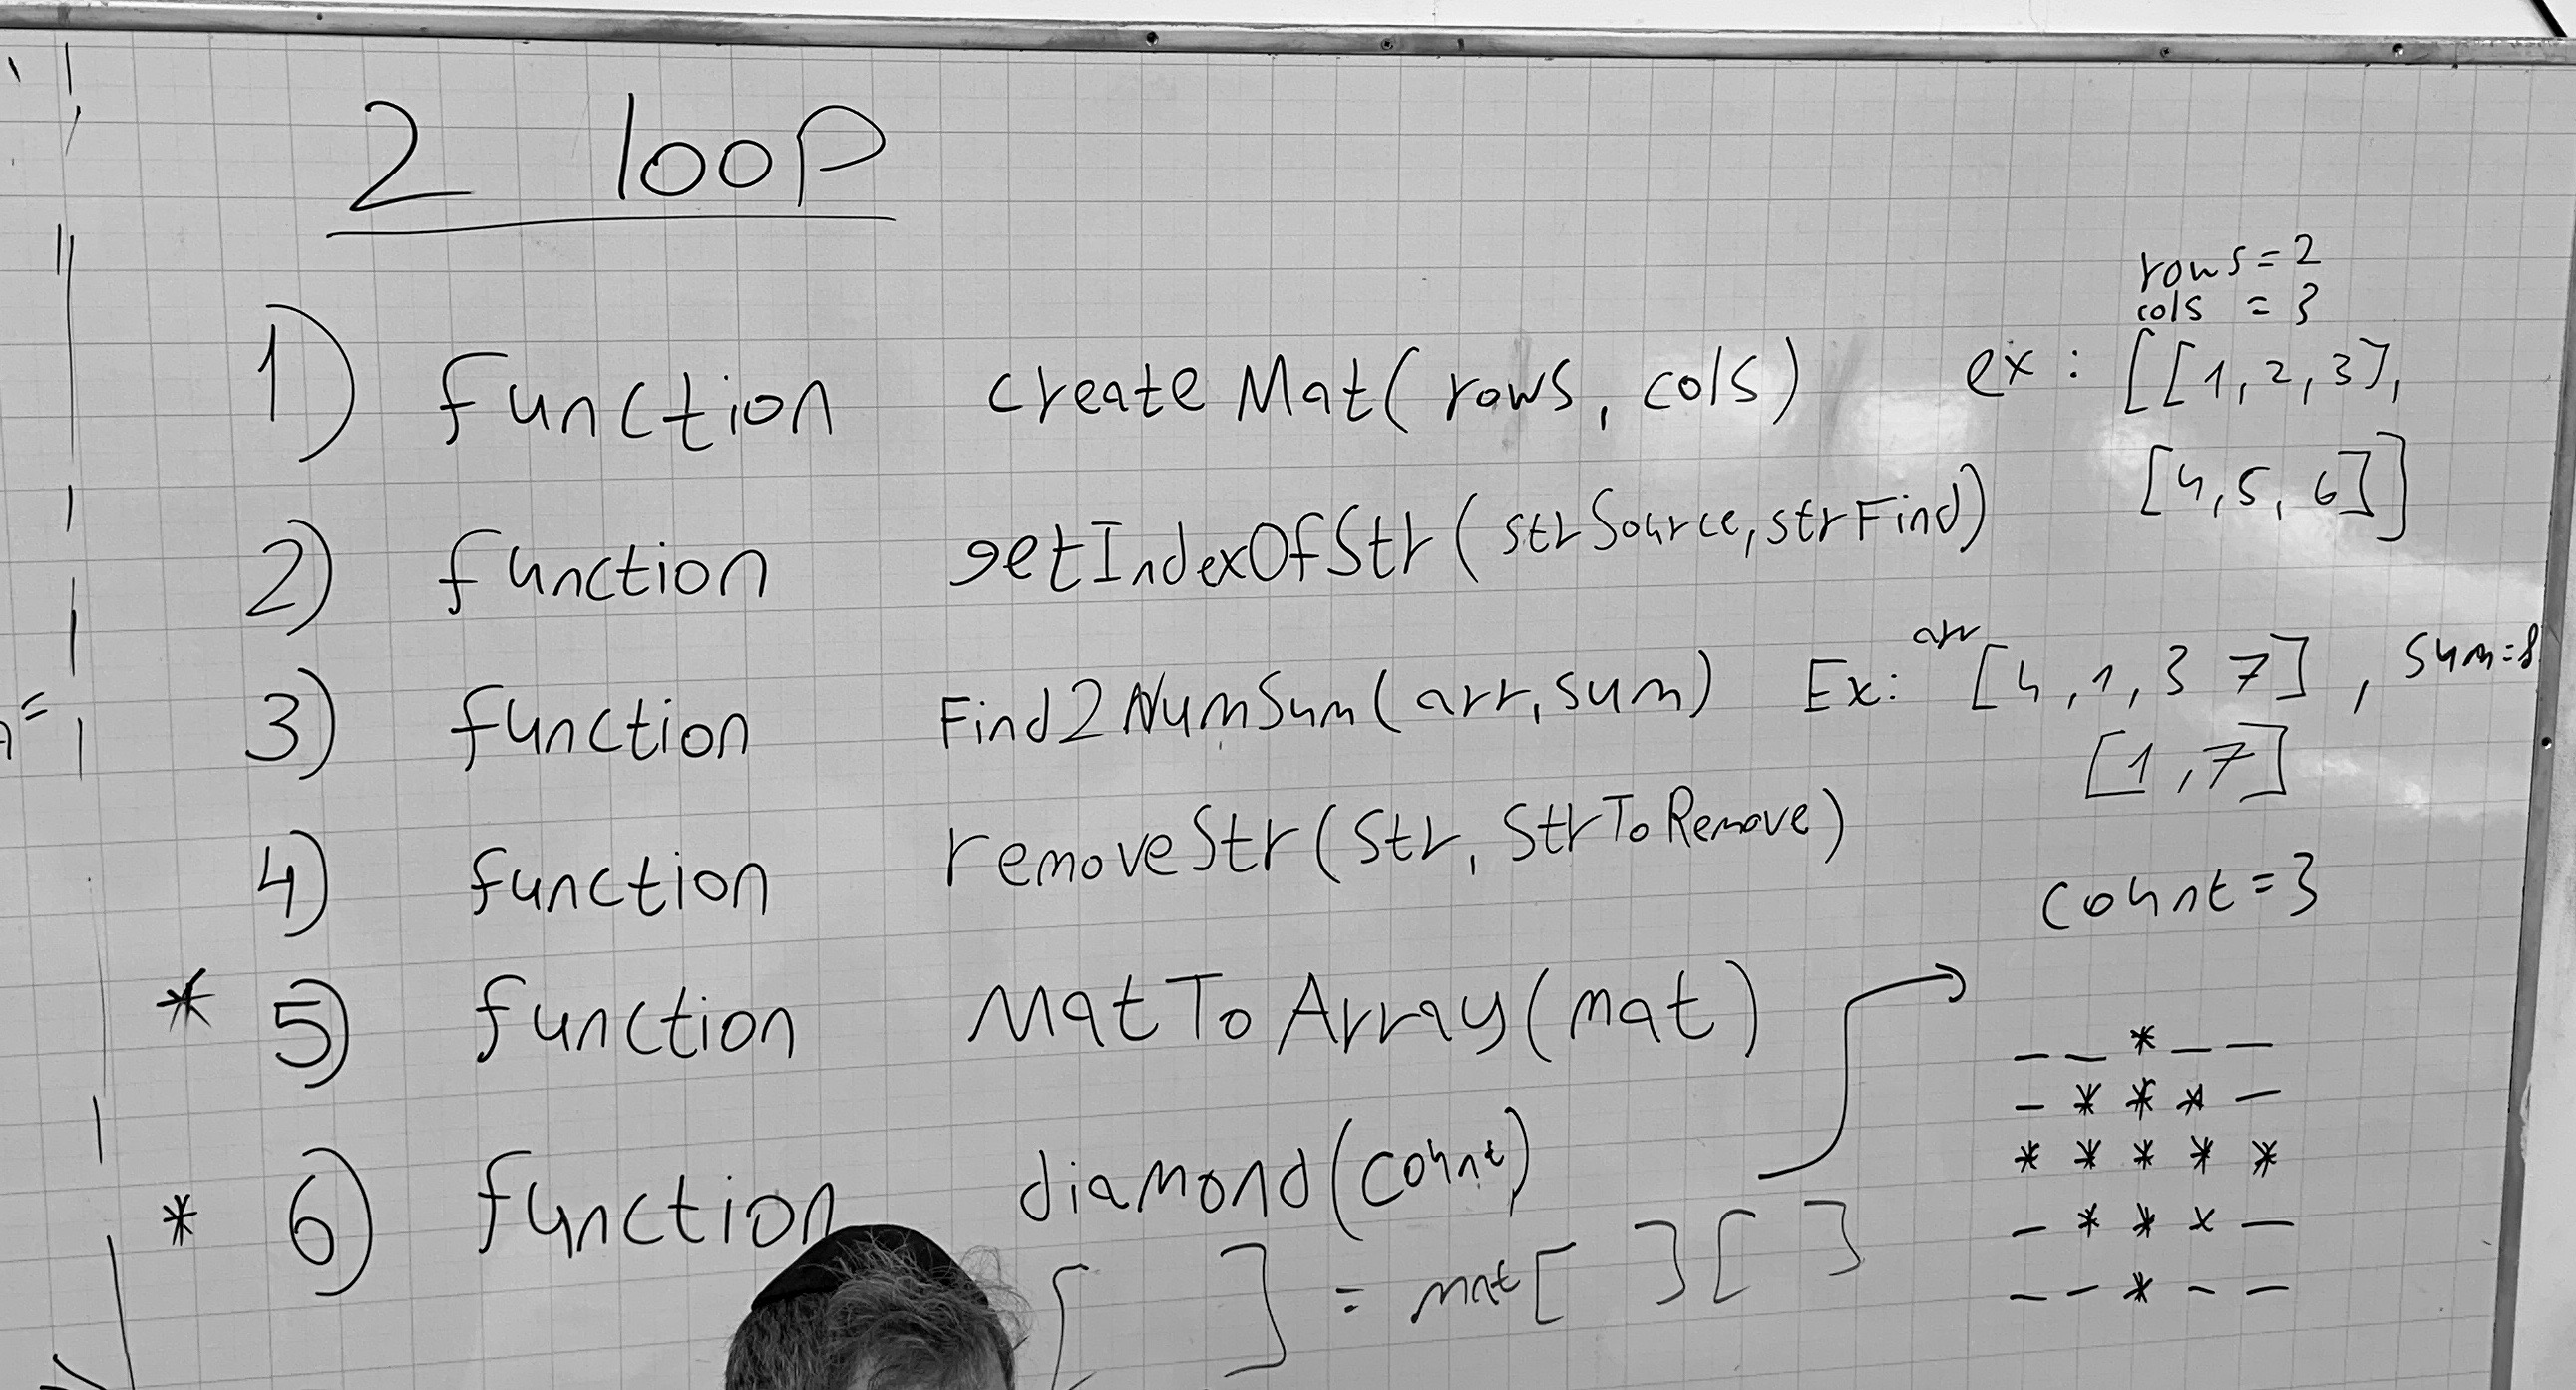 2 loop
1) function createMat(rows, cols) ex: rows=2
cols = 3
[[1,2,3],
[4,5,6]]
2) function getIndexOfStr(strSource, strFind)
3) function Find2NumSum(arr, sum) Ex: arr [4,1,3 7], sum=8
[1,7]
4) function removeStr(Str, StrToRemove)
* 5) function MatToArray(mat)
* 6) function diamond(count)
[ ] = mat[ ][ ]
count=3
_ _ * _ _
_ * * * _
* * * * *
_ * * * _
_ _ * _ _